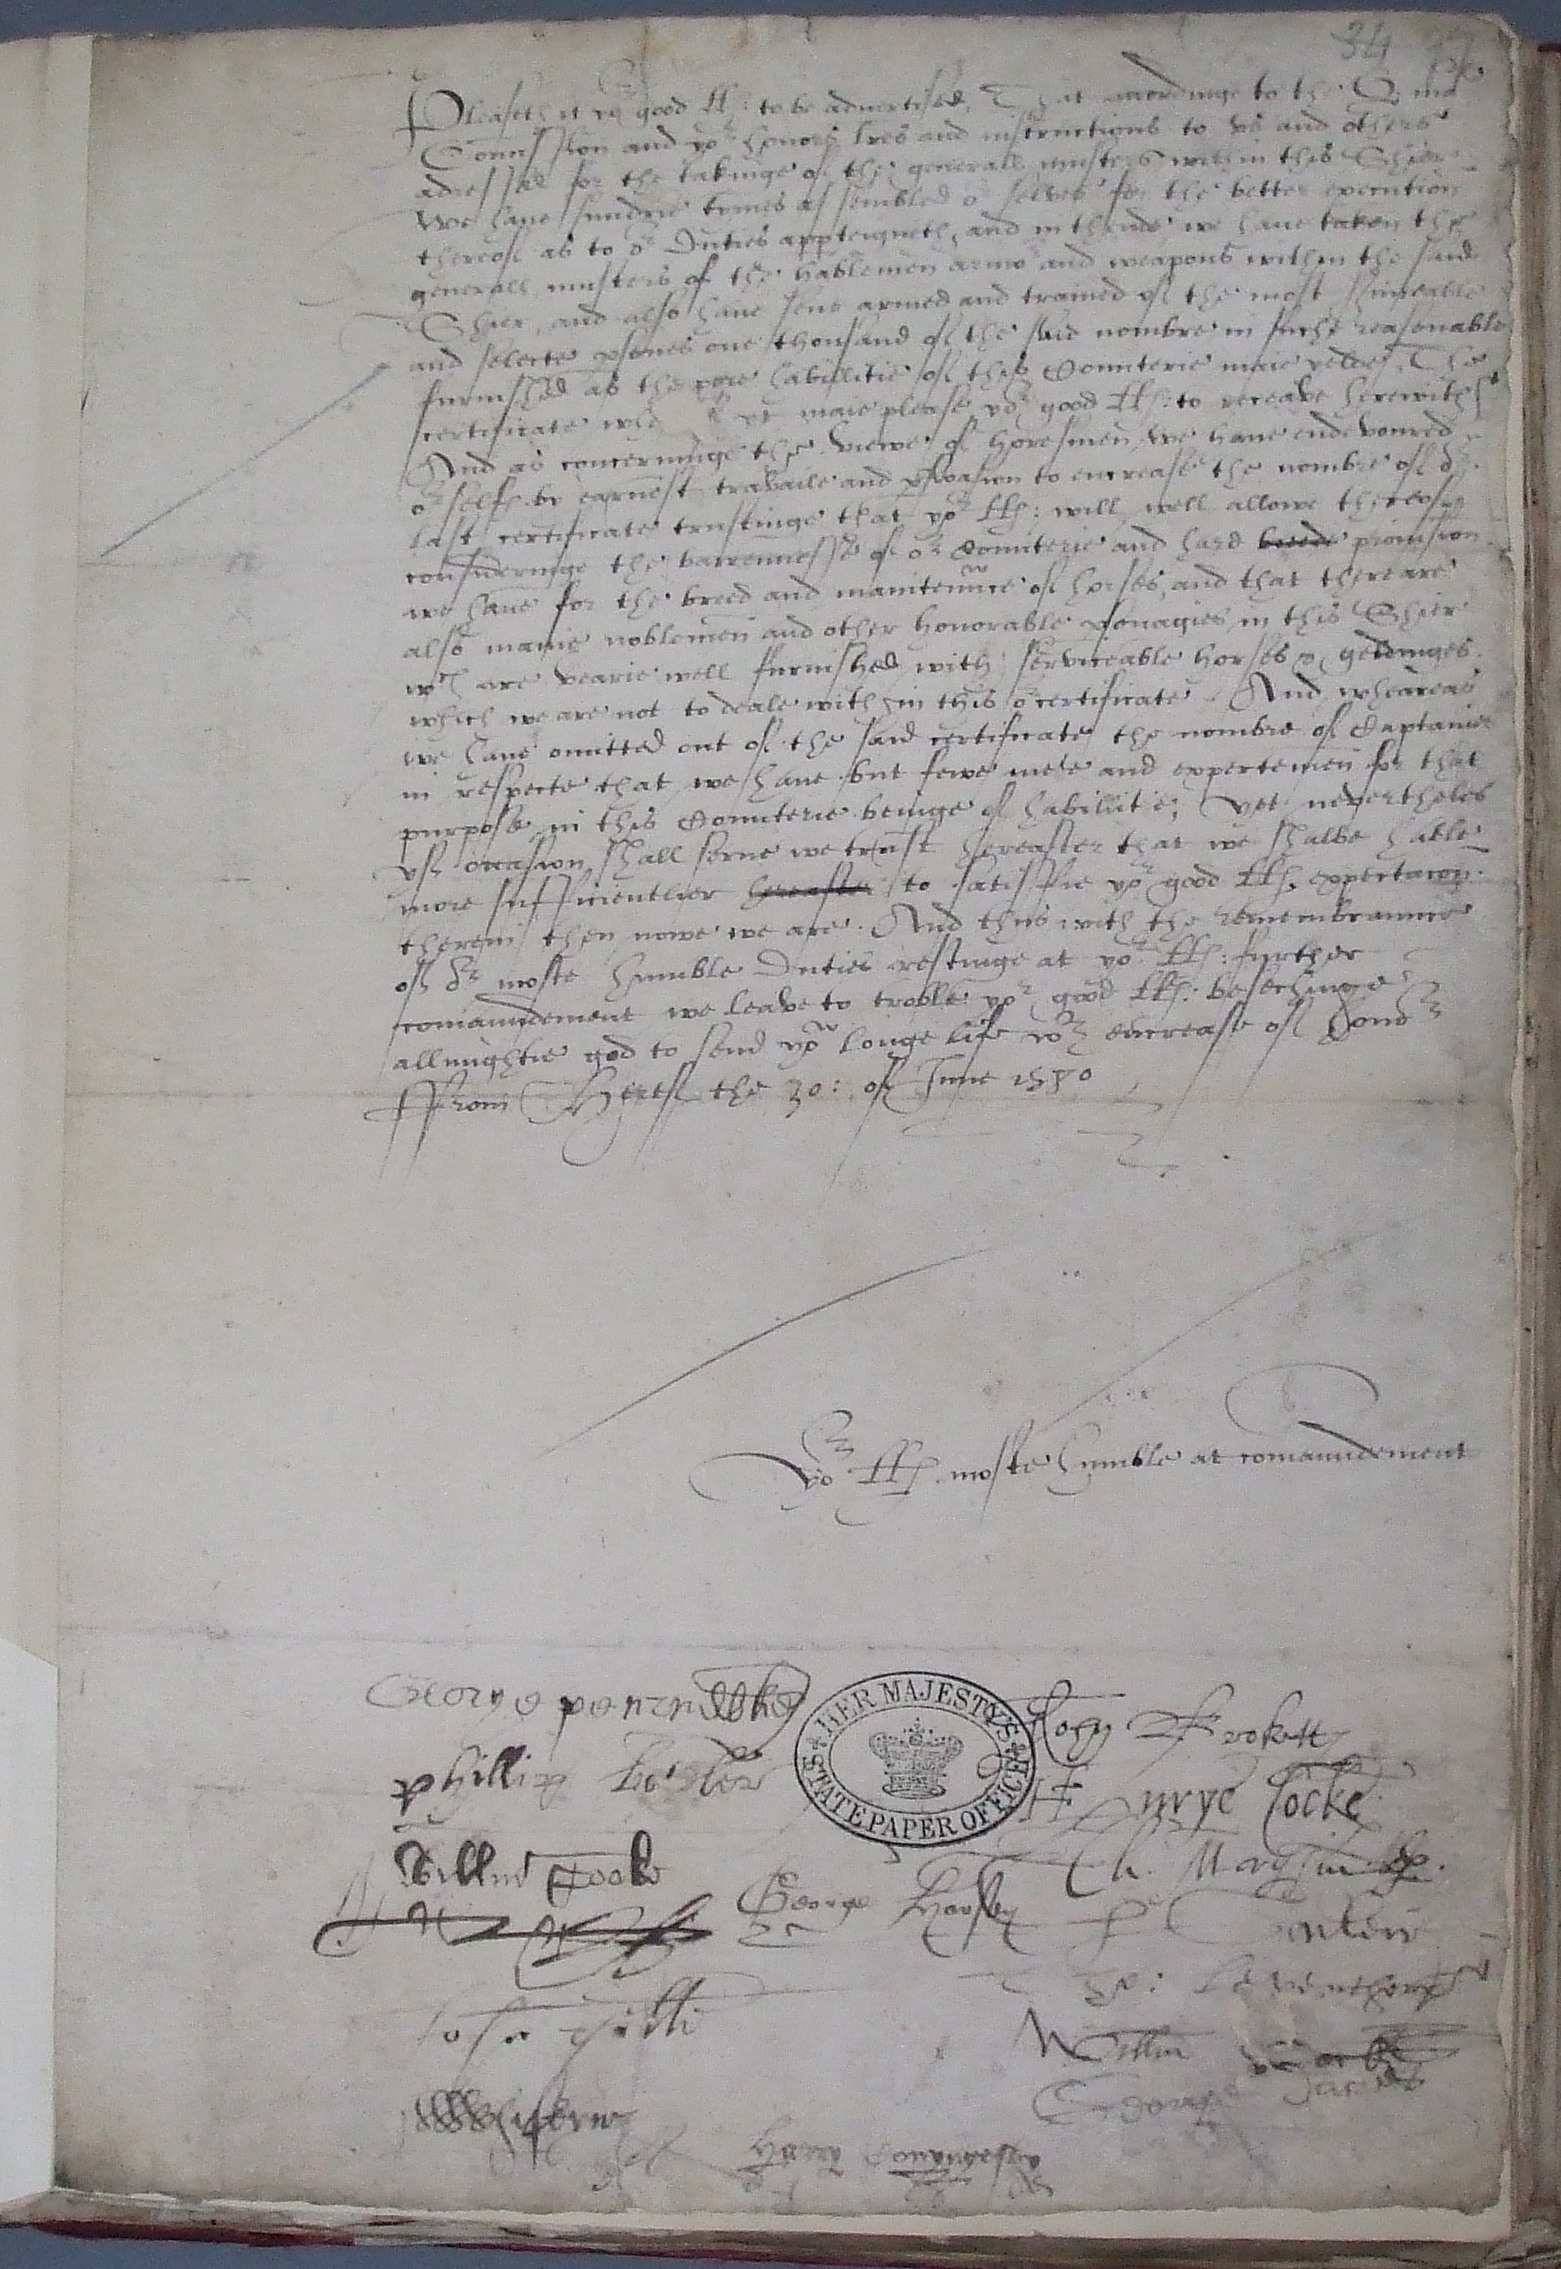 34
Pleaseth it yor good LLs: to be advertised, That accordinge to the Q. ma
Comission and yor honors lres and instructions to vs and others
adressed for the takinge of the generall musters within this Shier
We haue sundrie tymes assembled or selves for the better execution
thereof as to or Duties appteigneth, and in thende we haue taken the
generall musters of the hablemen armor and weapons within the said
Shier, and also haue sene armed and trained of the most serviceable
and selecte psones one thousand of the said nombre in suche reasonable
furnished as the pore habillitie of this Countrie maie yelde, The
certificate yt maie please yor good LLs: to receave herewith
And as concerninge the viewe of horesmen we haue endevoured
or selfs by earnest travaile and pswasion to encrease the nombre of or
last certificate trustinge that yor LLs: will well allowe thereof
consideringe the barrennesse of or Countrie and hard breede provision
we haue for the breed and maintenunce of horses, and that there are
also manie noblemen and other honorable psonagies in this Shier
wch are vearie well furnished with serviceable horses & geldinges
which we are not to deale with in this or certificate. And wheareas
we haue omitted out of the said certificate the nombre of Captaines
in respecte that we haue but fewe mete and experte men for that
purpose in this Countrie beinge of habilitie; yet nevertheles
yf occasion shall serve we trust hereafter that we shalbe hable
more sufficientlier hereafter to satisfie yor good LLs. expectacon
therein then nowe we are. And thus with the remembraunce
of or moste humble Duties restinge at yor LLs: further
comaundement we leave to troble yor good LLs: besechinge
allmightie god to send yow longe life wth encrease of honor
From Hertf the 30: of June 1580
Yor LLs moste humble at comaundement
George
phillip Botler
HER MAJESTY'S STATE PAPER OFFICE
John Brokett
Henrye Cocke
Willm
George Horsey
Th.
Leventhorp
Willm
George
Harry Conyngesby